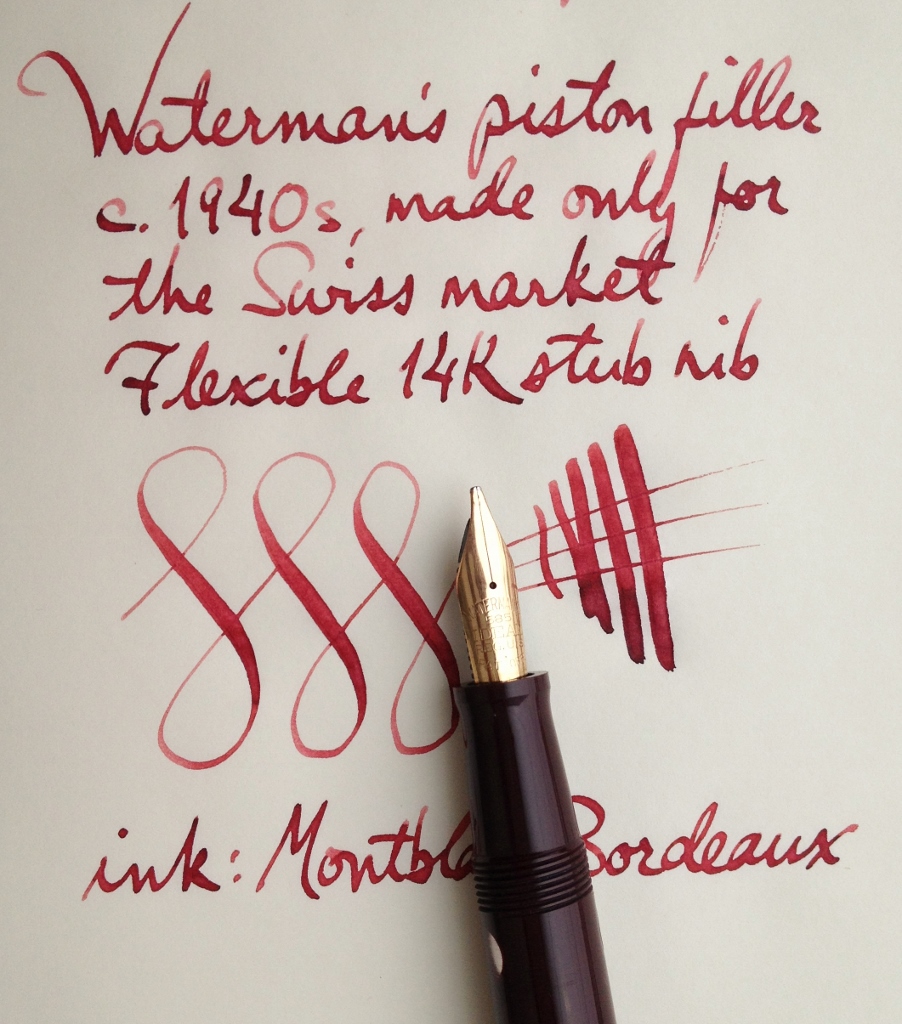 Waterman's piston filler
c. 1940s, made only for
the Swiss market
Flexible 14K stub nib
585
ink: Montbla Bordeaux